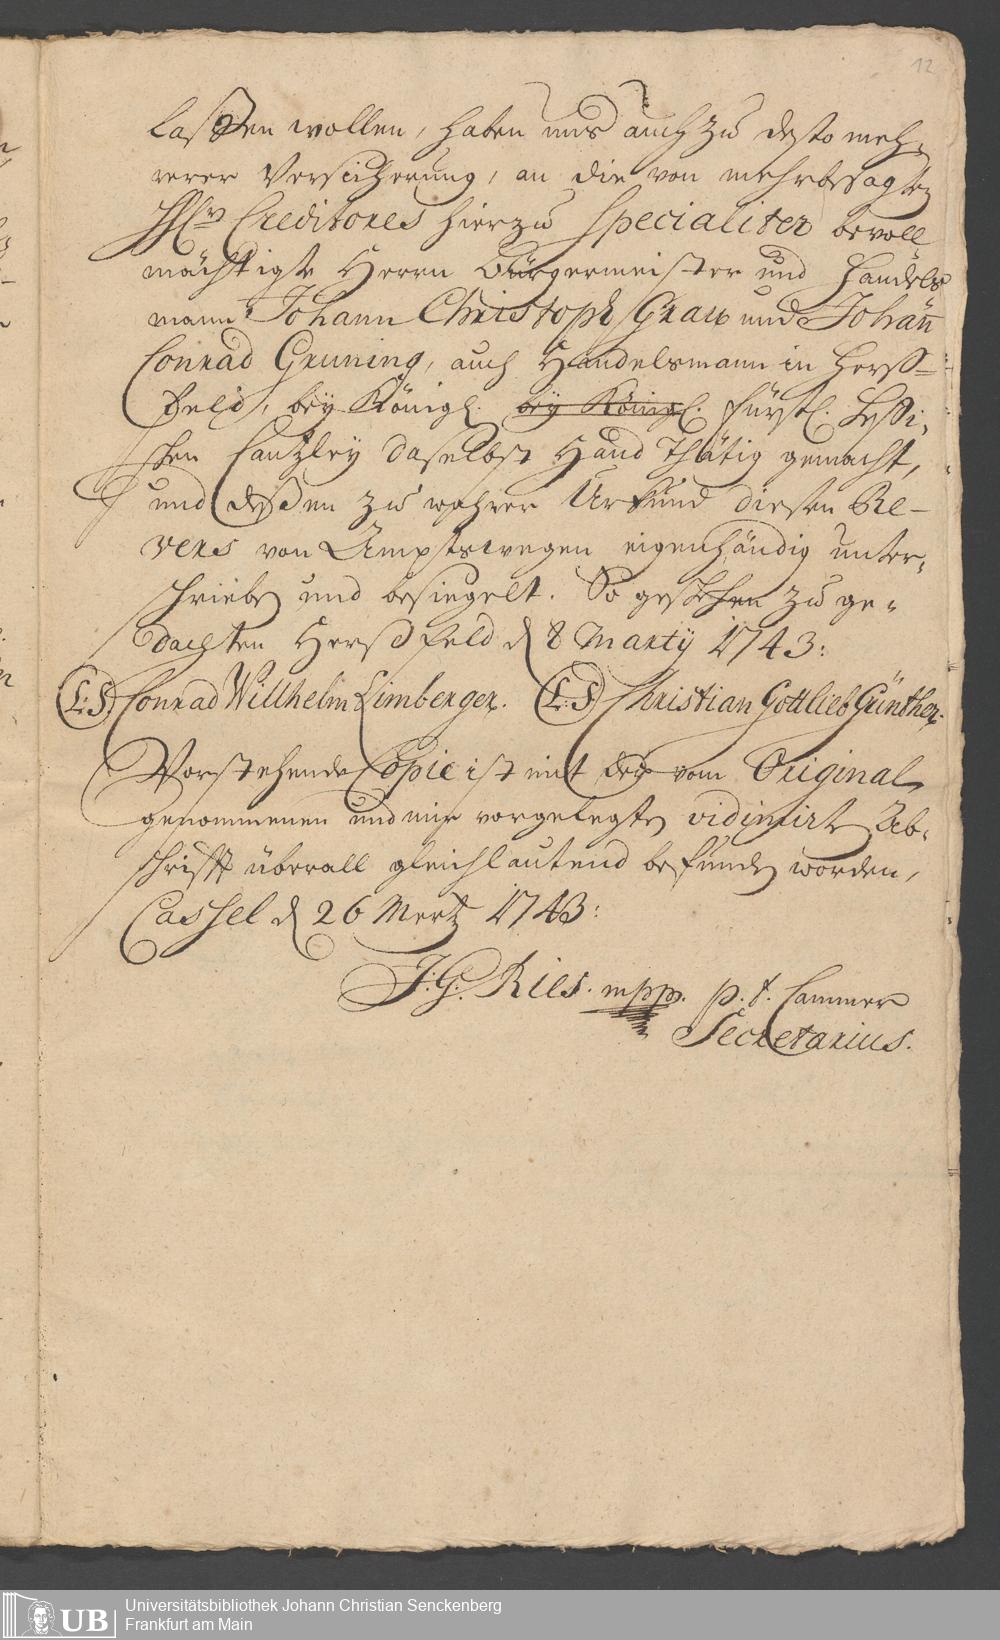 12
laßen wollen, haben uns auch zu desto meh-
rerer Versicherung, an die von mehrbesagten
HHrn Creditores hierzu specialiter bevoll
mächtigte Herrn Bürgermeister und Handels
mann Johann Christoph Grau und Johann
Conrad Gruning, auch Handelsmann in Herß-
feld, bey Königl. bey Königl. Fürstl. Heßi-
schen Cantzley daselbst Hand thätig gemacht,
und deßen zu wahrer Urkund diesen Re-
vers von Ampts wegen eigenhändig unter-
schrieben und besiegelt. So geschehen zu ge-
dachten Herßfeld d 8 Martij 1743:
(L:S) Conrad Willhelm Limberger. (L:S) Christian Gottlieb Günther.
Vorstehende Copie ist mit der vom Original
genommenen und mir vorgelegten vidimirten Ab-
schrifft überall gleichlautend befunden worden,
Cassel d 26 Mertz 1743:
J: G: Ries. mpp. p. t. Cammer
Secretarius.
UB Universitätsbibliothek Johann Christian Senckenberg
Frankfurt am Main